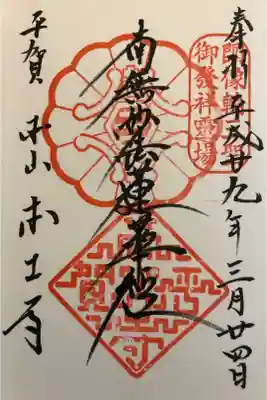 平成廿九年三月廿四日
御發祥靈場
南無妙法蓮華経
平賀 本山 本土寺